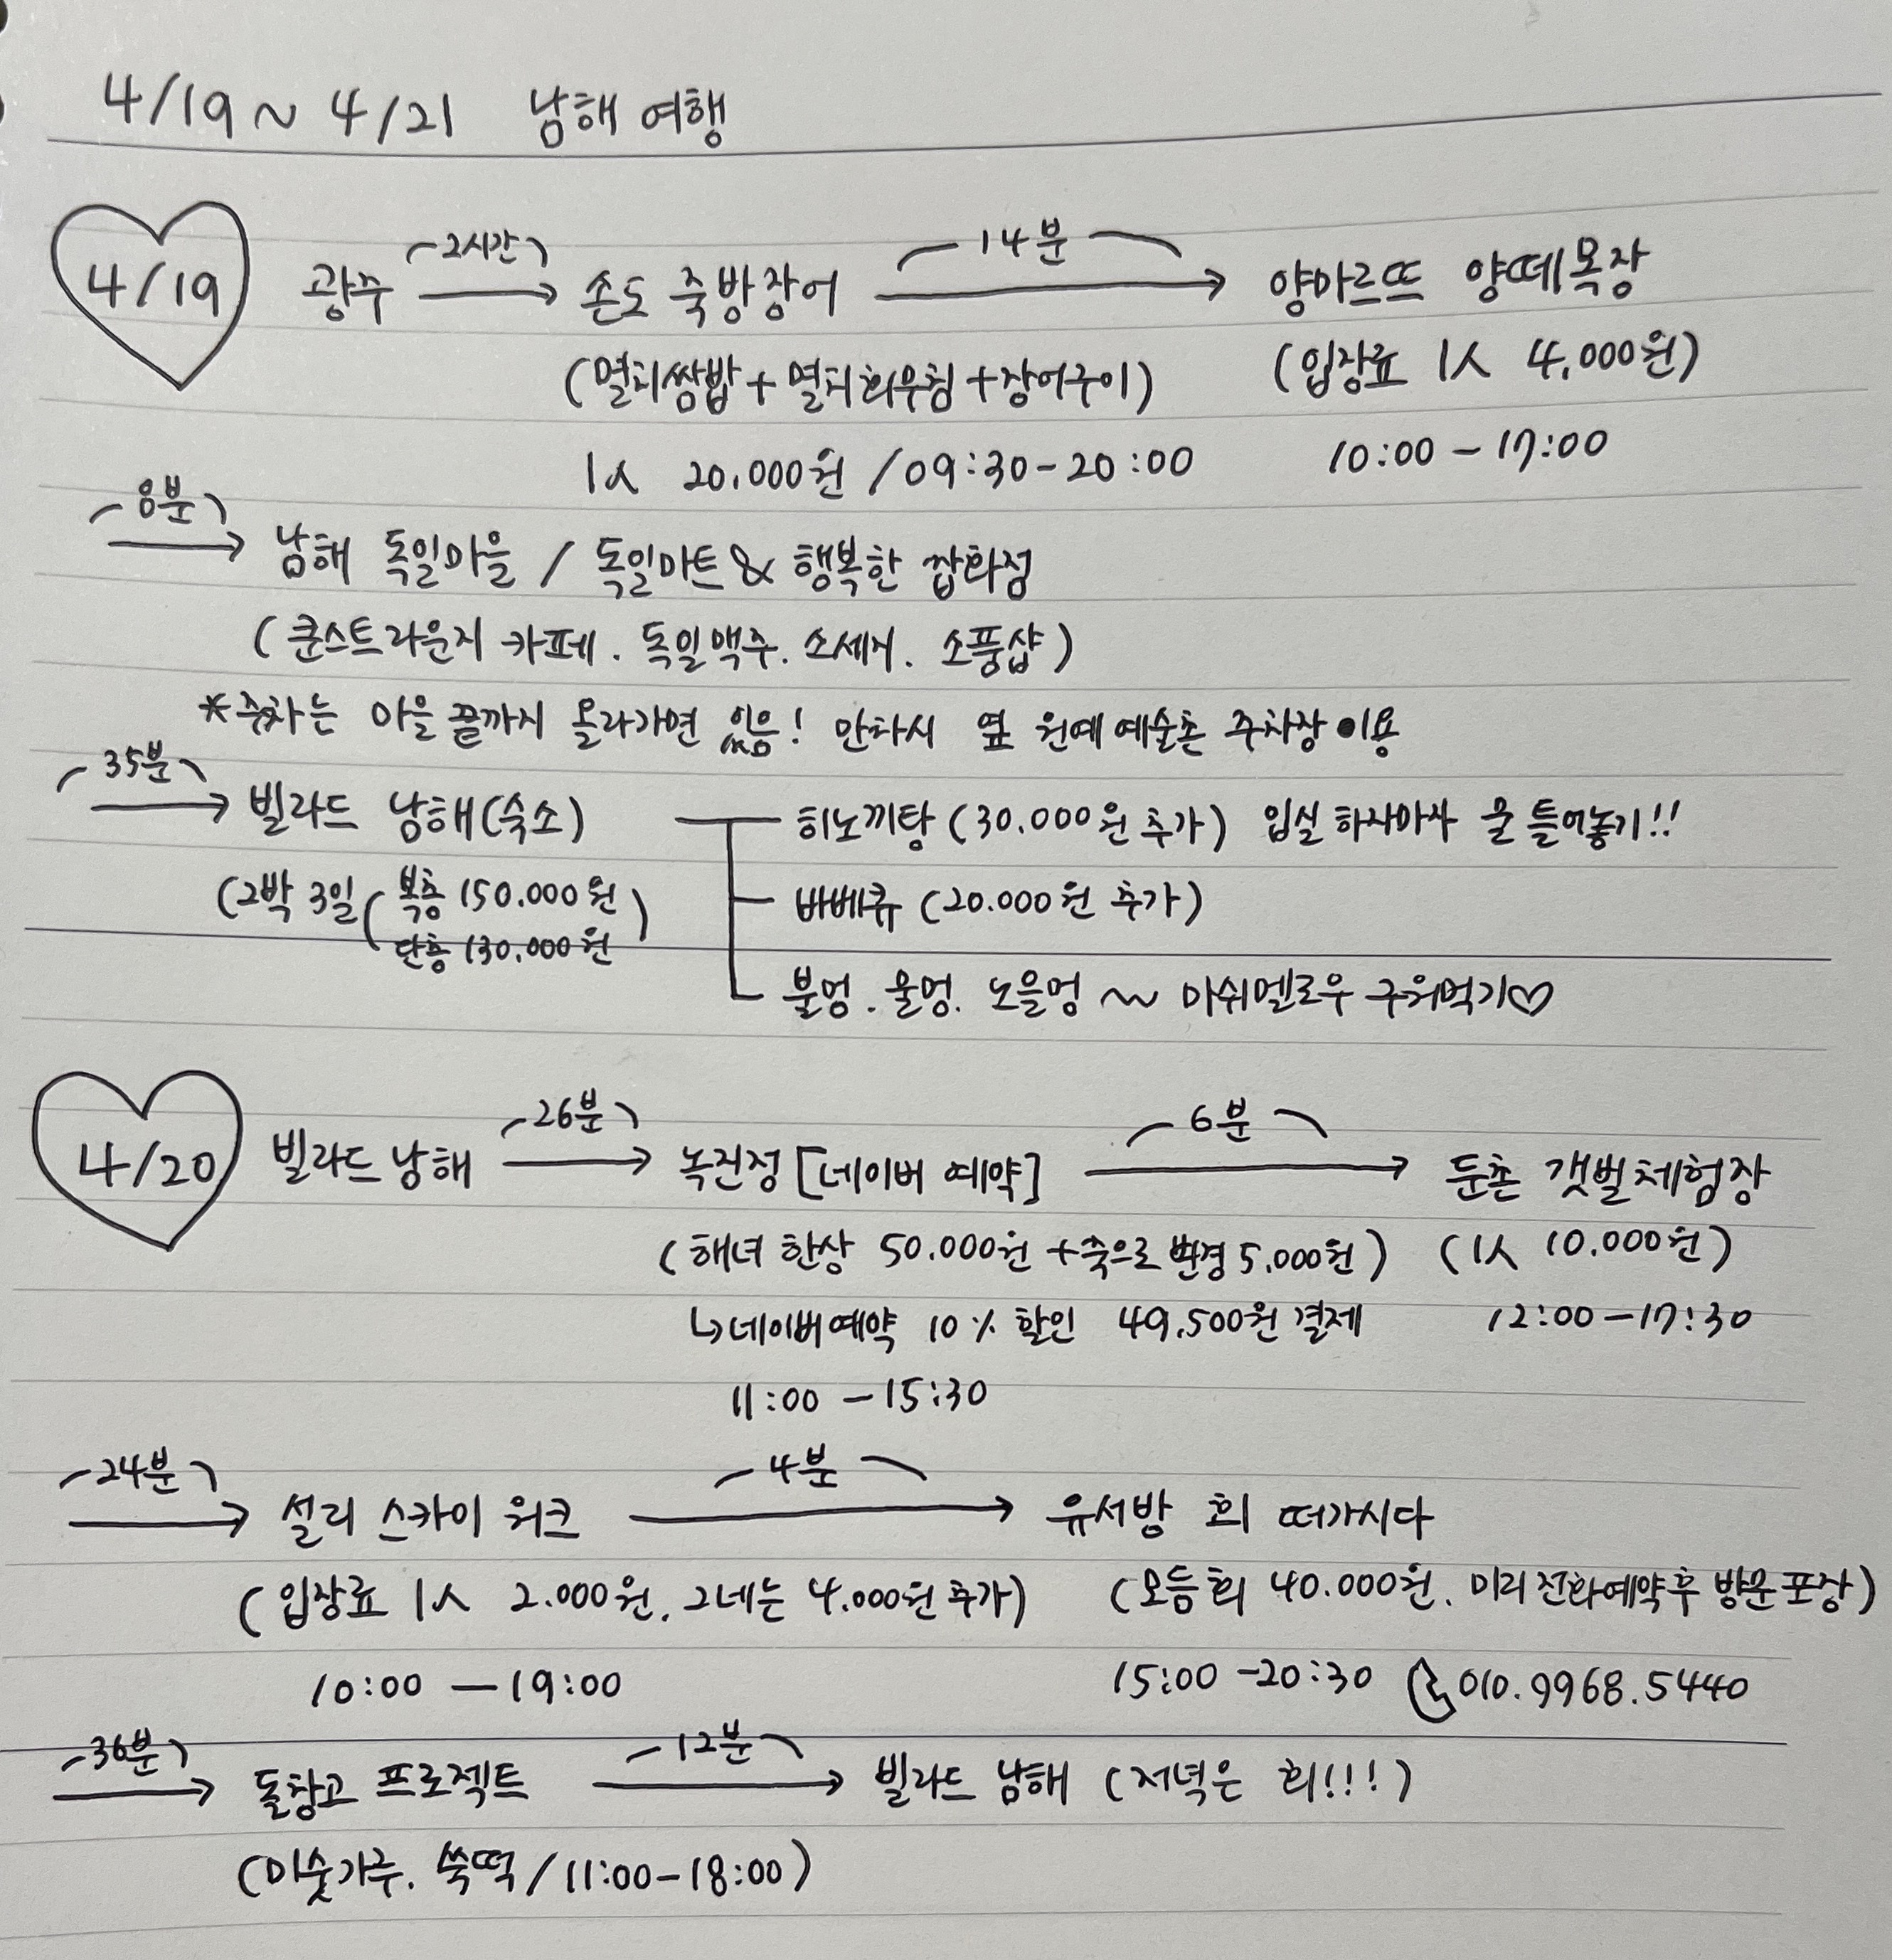 4/19 ~ 4/21 남해 여행
2시간 14분
4/19 광주 → 손도 죽방장어 → 양마르뜨 양떼목장
(멸치쌈밥 + 멸치회무침 + 장어구이) (입장료 1人 4,000원)
1人 20,000원 / 09:30 - 20:00 10:00 - 17:00
8분
→ 남해 독일마을 / 독일마트 & 행복한 잡화점
(쿤스트라운지 카페. 독일맥주. 소세지. 소품샵)
*주차는 마을 끝까지 올라가면 있음! 만차시 옆 원예예술촌 주차장 이용
35분
→ 빌라드 남해(숙소) 히노끼탕 (30.000원 추가) 입실 하자마자 물 틀어놓기!!
(2박 3일 ( 복층 150.000원 바베큐 (20.000원 추가)
단층 130.000원 )
불멍. 물멍. 노을멍 ~~ 마쉬멜로우 구워먹기♡
26분 6분
4/20 빌라드 남해 → 녹진정 [네이버 예약] → 둔촌 갯벌체험장
(해녀 한상 50.000원 + 죽으로 변경 5.000원) (1人 10.000원)
↳ 네이버예약 10% 할인 49.500원 결제 12:00 - 17:30
11:00 - 15:30
24분 4분
→ 설리 스카이 워크 → 유서방 회 떠가시다
(입장료 1人 2.000원. 그네는 4.000원 추가) (모듬회 40.000원. 미리 전화예약 후 방문 포장)
10:00 - 19:00 15:00 - 20:30 010.9968.5440
36분 12분
→ 돌창고 프로젝트 → 빌라드 남해 (저녁은 회!!!)
(미숫가루. 쑥떡 / 11:00 - 18:00)